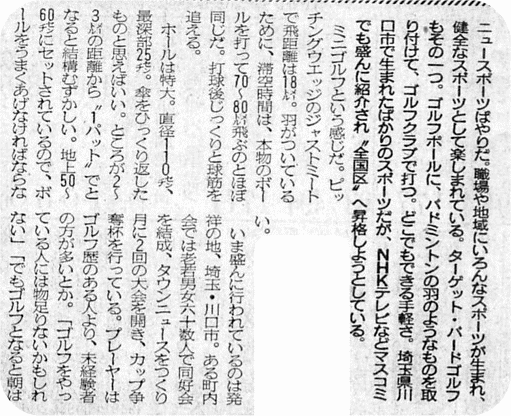 ニュースポーツばやりだ。職場や地域にいろんなスポーツが生まれ、
健全なスポーツとして楽しまれている。ターゲット・バードゴルフ
もその一つ。ゴルフボールに、バドミントンの羽のようなものを取
り付けて、ゴルフクラブで打つ。どこでもできる手軽さ。埼玉県川
口市で生まれたばかりのスポーツだが、NHKテレビなどマスコミ
でも盛んに紹介され〝全国区〟へ昇格しようとしている。
ミニゴルフという感じだ。ピッ
チングウエッジのジャストミート
で飛距離は18㍍。羽がついている
ために、滞空時間は、本物のボー
ルを打って70〜80㍍飛ぶのとほぼ
同じだ。打球後じっくりと球筋を
追える。
ホールは特大。直径110㌢、
最深部25㌢。傘をひっくり返した
ものと思えばいい。ところが2〜
3㍍の距離から〝1パット〟でと
なると結構むずかしい。地上50〜
60㌢にセットされているので、ボ
ールをうまくあげなければならな
い。
いま盛んに行われているのは発
祥の地、埼玉・川口市。ある町内
会では老若男女六十数人で同好会
を結成、タウンニュースをつくり
月に2回の大会を開き、カップ争
奪杯を行っている。プレーヤーは
ゴルフ歴のある人より、未経験者
の方が多いとか。「ゴルフをやっ
ている人には物足りないかもしれ
ない」「でもゴルフとなると朝は